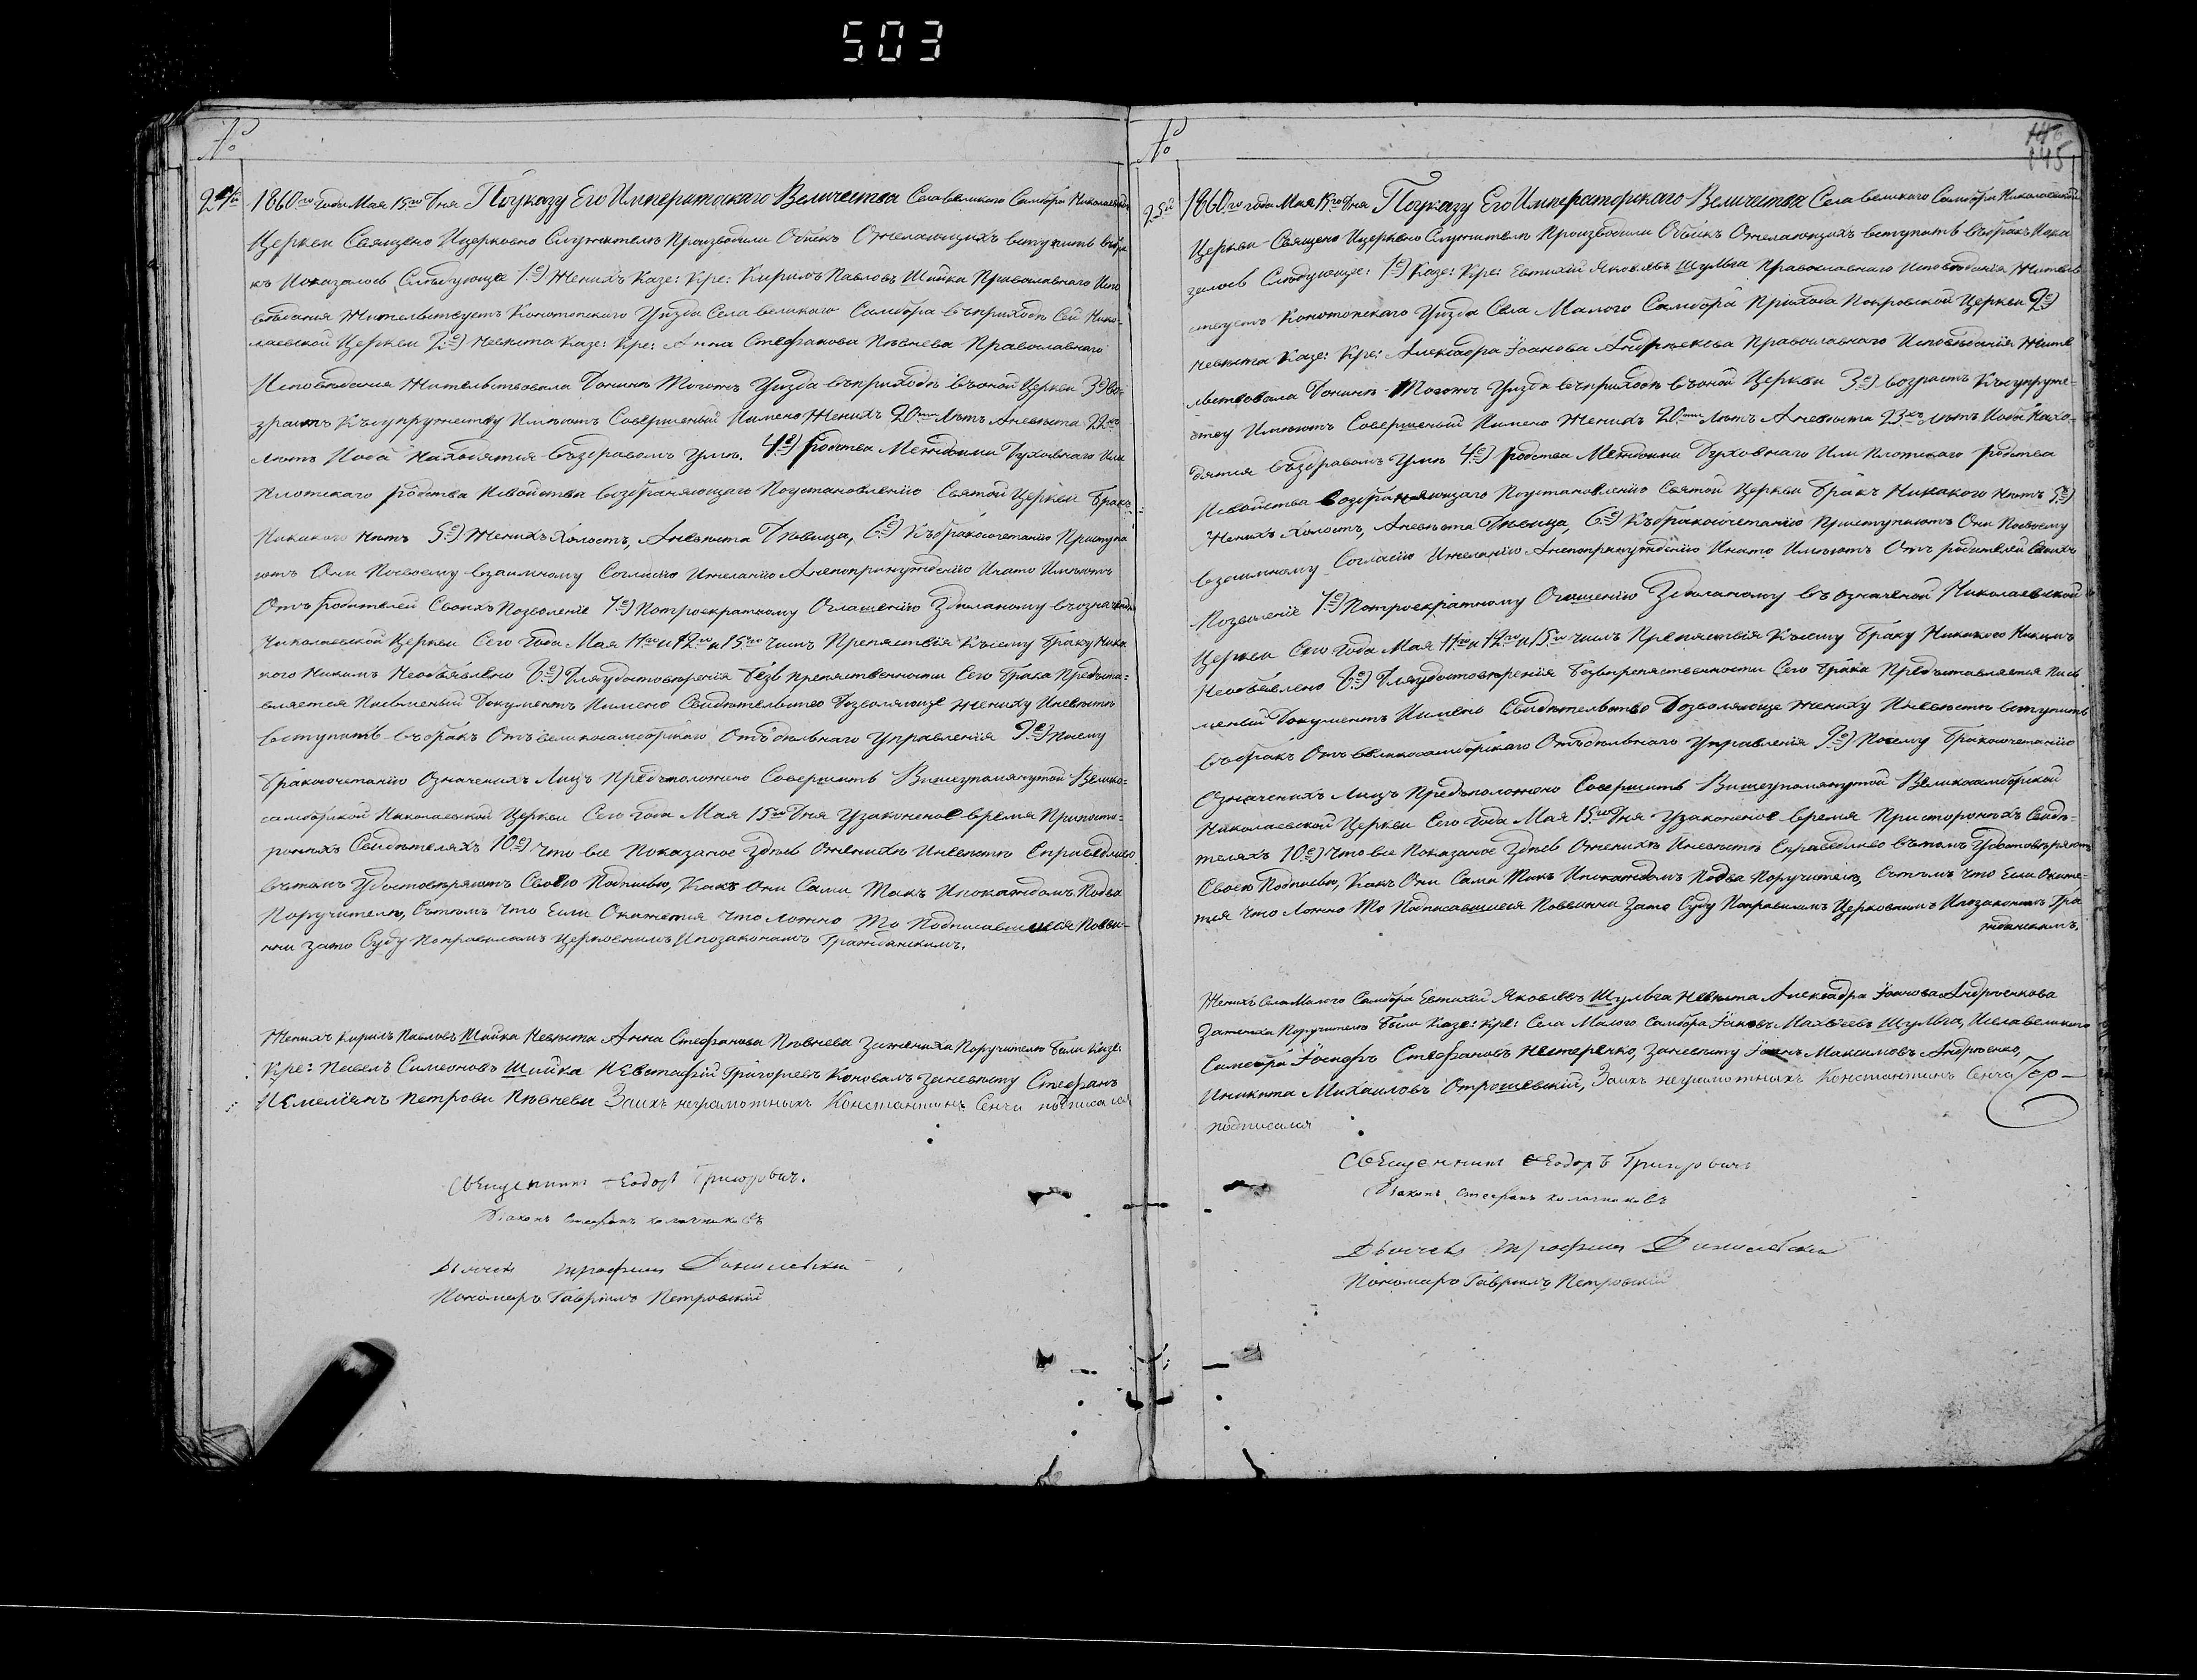 503
№
24й 1860го года Мая 15го Дня По указу Его Императоскаго Величества Села великого Самбора Николаевской
Церкви Священо Ицерковно Служители Производили Обыкъ Ожелающихъ вступить въбра
къ Ипоказалось Следующее 1е) Женихъ Казе: Кре: Кирилъ Павловъ Шийка Православнаго Испо
ведания Жительствуетъ Конотопскаго Уизда Села великаго Самбора въприходе Сей Нико-
лаевской Церкви 2е) Невеста Казе: Кре: Анна Стефанова Певнева Православнаго
Исповедания Жительствовала Донине Тогожъ Уизда въприходе въоной Церкви 3е) во-
зрастъ Късупружеству Имеютъ Совершеный Имено Женихъ 20ти Летъ Аневеста 22хъ
летъ Иоба находятся въздравомъ Уме. 4е) Родства Междоими Духовнаго Или
Плотскаго родства Исвойства возбраняющаго Поустановлению Святой Церкви Бракъ
Никакого нетъ 5е) Женихъ Холостъ, Аневеста Девица, 6е) Къбракосочетанию Приступа
ютъ Они Посвоему взаимному Согласию Ижеланию Анепопринуждению Инато Имеютъ
Отъ родителей Своихъ Позволение 7е) Потроекратному Оглашению Зделаному въозначеной
Николаевской Церкви Сего Года Мая 11го и 12го и 15го чисъ Препятствия Късему браку Ника
кого Никимъ Необъявлено 8е) Дляудостоверения безъ препятственности Сего брака Предъста-
вляется Писменый Документъ Имено Свидетельство Дозволяюще жениху Иневесте
вступить въбракъ Отъ великосамборскаго Отъдельнаго Управления 9е) Посему
бракосочетанию Означенихъ Лицъ Предъположено Совершить Вишеупомянутой Велико-
самборской Николаевской Церкви Сего Года Мая 15го Дня Узаконеное время Припосто-
роннихъ Свидетеляхъ 10е) Что все Показаное Здесь Ожениху Иневесте Справедливо
вътомъ Удостоверяютъ Своею Подписью, Какъ Они Сами Такъ Ипокаждомъ Подва
Поручители, Сътемъ что Если Окажется Что Ложно То Подписавшиеся Повви-
нни Зато Суду Поправиламъ Церковнимъ Ипозаконамъ Гражданскимъ.
Женихъ Кирилъ Павловъ Шийка Невеста Анна Стефанова Певнева Зажениха Поручители Были Казе:
Кре: Павелъ Симеоновъ Шийка И Евстафий Григориевъ Коновалъ Заневесту Стефанъ
И Емелиянъ Петрови Певневи За ихъ неграмотныхъ Константинъ Сенча подписался
Священникъ Ѳеодоръ Григоровичъ.
Диаконъ Стефанъ Калачниковъ
Дьячекъ Трофимъ Данилевский
Пономарь Гавриилъ Петровский
№
145
25й 1860го года Мая 15го Дня По указу Его Императорскаго Величества Села великого Самбора Николаевской
Церкви Священо Ицерковно Служители Производили Обыкъ Ожелающихъ вступить въбракъ Ипока
залось Следующее: 1е) Казе: Кре: Евтихий Яковлевъ Шульга Православнаго Исповедания Житель
ствуетъ Конотопскаго Уизда Села Малого Самбора Прихода Покровской Церкви 2е)
Невеста Казе: Кре: Александра Іоанова Андриевска Православнаго Исповедания Жите
льствовала Донине Тогожъ Уизда въприходе въоной Церкви 3е) возрастъ Късупруже-
ству Имеютъ Совершеный Имено Женихъ 20ти Летъ Аневеста 23хъ летъ Иоба Нахо-
дятся въздравомъ Уме 4е) родства Междоими Духовнаго Или Плотскаго родства
Исвойства возбраняющаго Поустановлению Святой Церкви бракъ Никакого нетъ 5е)
Женихъ Холостъ, Аневеста Девица, 6е) Къбракосочетанию Приступаютъ Они Посвоему
взаимному Согласию Ижеланию Анепопринуждению Инато Имеютъ Отъ родителей Своихъ
Позволение 7е) Потроекратному Оглашению Зделаному въозначеной Николаевской
Церкви Сего Года Мая 11го и 12го и 15го чисъ Препятствия Късему браку Никакого Никимъ
Необъявлено 8е) Дляудостоверения безпрепятственности Сего брака Предъставляется Пис
меный Документъ Имено Свидетельство Дозволяюще Жениху Иневесте вступить
въбракъ Отъ великосамборскаго Отъдельнаго Управления 9е) Посему бракосочетанию
Означенихъ Лицъ Предъположено Совершить Вишеупомянутой Великосамборской
Николаевской Церкви Сего Года Мая 15го Дня Узаконеное время Присторонихъ Свиде-
теляхъ 10е) Что все Показаное Здесь Ожениху Иневесте Справедливо вътомъ Удостоверяютъ
Своею Подписью, Какъ Они Сами Такъ Ипокаждомъ Подва Поручители, Сътемъ Что Если Окаже-
тся Что Ложно То Подписавшиеся Поввинни Зато Суду Поправиламъ Церковнимъ Ипозаконамъ Гра
жданскимъ.
Женихъ Села Малого Самбора Евтихий Яковлевъ Шульга Невеста Александра Іоанова Андриенкова
Зажениха Поручители Были Казе: Кре: Села Малого Самбора Іаковъ Матвеевъ Шульга, Исела великого
Самбора Іосифъ Стефановъ Нестеренко, Заневесту Іоанъ Максимовъ Андриенко,
Иникита Михаиловъ Отрошевский, За ихъ неграмотныхъ Константинъ Сенча
подписался
Священникъ Ѳеодоръ Григоровичъ
Диаконъ Стефанъ Калачниковъ
Дьячекъ Трофимъ Данилевский
Пономарь Гавриилъ Петровский